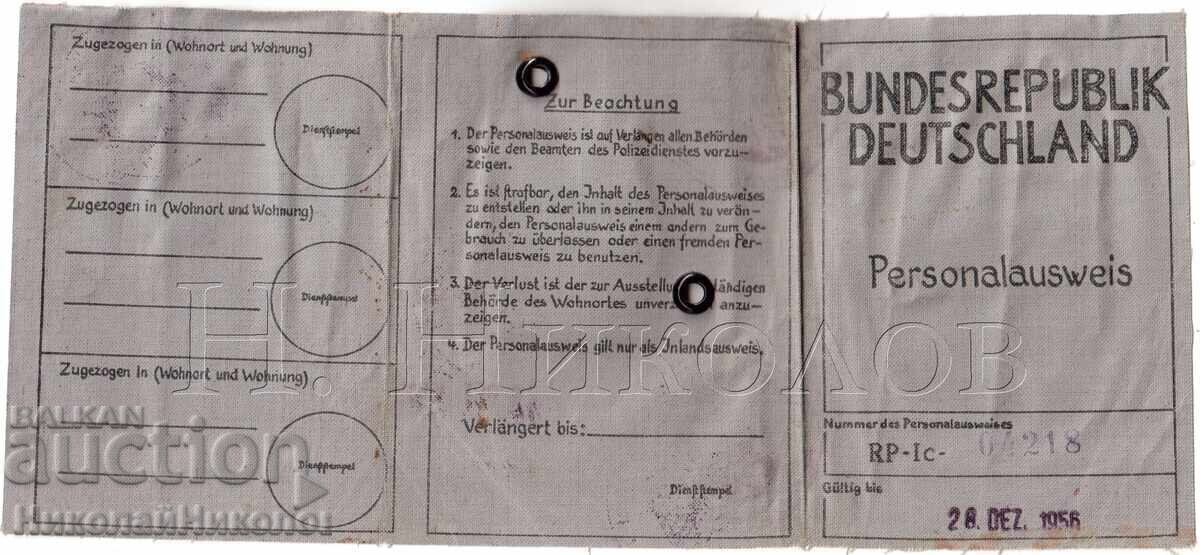 Zugezogen in (Wohnort und Wohnung)
Dienststempel
Zugezogen in (Wohnort und Wohnung)
Dienststempel
Zugezogen in (Wohnort und Wohnung)
Dienststempel
Zur Beachtung
1. Der Personalausweis ist auf Verlangen allen Behörden
sowie den Beamten des Polizeidienstes vorzu-
zeigen.
2. Es ist strafbar, den Inhalt des Personalausweises
zu entstellen oder ihn in seinem Inhalt zu verän-
dern, den Personalausweis einem andern zum Ge-
brauch zu überlassen oder einen fremden Per-
sonalausweis zu benutzen.
3. Der Verlust ist der zur Ausstellu ändigen
Behörde des Wohnortes unverz anzu-
zeigen.
4. Der Personalausweis gilt nur als Inlandsausweis.
Verlängert bis:
Dienststempel
BUNDESREPUBLIK
DEUTSCHLAND
Personalausweis
Nummer des Personalausweises
RP-Ic- 04218
Gültig bis
28. DEZ. 1956
Н. НИКОЛОВ
BALKAN
auction
НиколайНиколов